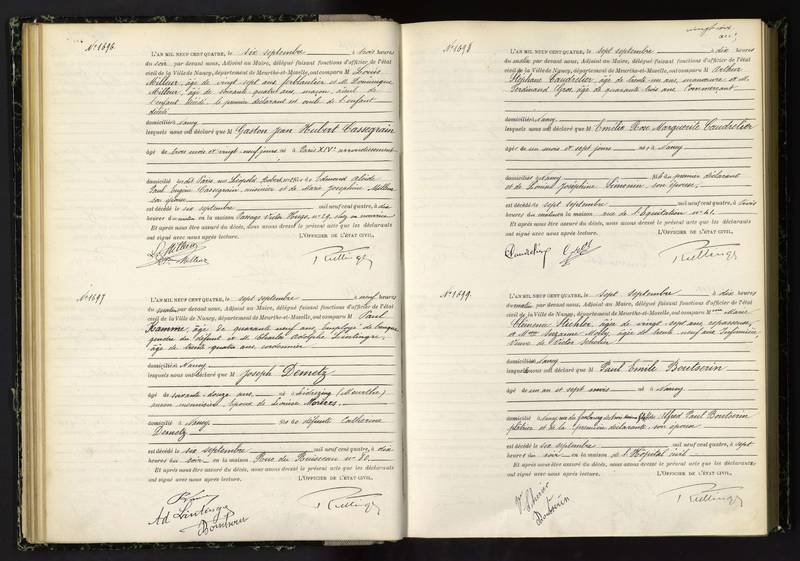 N° 1696
L'AN MIL NEUF CENT QUATRE, le six septembre à trois heures
du soir par devant nous, Adjoint au Maire, délégué faisant fonctions d'officier de l'état
civil de la Ville de Nancy, département de Meurthe-et-Moselle, ont comparu M Louis
Milleur, âgé de vingt sept ans, ferblantier et M. Dominique
Milleur, âgé de soixante quatre ans, maçon, aïeul de
l'enfant décédé, le premier déclarant est oncle de l'enfant
décédé.
domiciliés à Nancy
lesquels nous ont déclaré que M Gaston Jean Hubert Cassegrain
âgé de trois mois et vingt neuf jours né à Paris XIVe arrondissement
domicilié au dit Paris, rue Léopold Robert, fils de Edmond
Paul Eugène Cassegrain, menuisier et de Marie Joséphine Milleur
son épouse
est décédé le six septembre mil neuf cent quatre, à dix
heures du matin en la maison Passage Victor Hugo, n° 29, chez sa nourrice
Et après nous être assuré du décès, nous avons dressé le présent acte que les déclarants
ont signé avec nous après lecture. L'OFFICIER DE L'ÉTAT CIVIL,
L. Milleur
D. Milleur
N° 1697
L'AN MIL NEUF CENT QUATRE, le sept septembre à neuf heures
du matin par devant nous, Adjoint au Maire, délégué faisant fonctions d'officier de l'état
civil de la Ville de Nancy, département de Meurthe-et-Moselle, ont comparu M Paul
âgé de quarante neuf ans, employé de banque
gendre du défunt et M. Charles Adolphe
âgé de trente quatre ans, cordonnier
domiciliés à Nancy
lesquels nous ont déclaré que M Joseph Demetz
âgé de soixante-douze ans né à Hidrezing (Meurthe)
ancien menuisier, époux de Louise
domicilié à Nancy fils de défunte Catherine
Demetz
est décédé le six septembre mil neuf cent quatre, à dix
heures du soir en la maison Rue du Ruisseau n° 80.
Et après nous être assuré du décès, nous avons dressé le présent acte que les déclarants
ont signé avec nous après lecture. L'OFFICIER DE L'ÉTAT CIVIL,
N° 1698
L'AN MIL NEUF CENT QUATRE, le sept septembre à dix heures
du matin par devant nous, Adjoint au Maire, délégué faisant fonctions d'officier de l'état
civil de la Ville de Nancy, département de Meurthe-et-Moselle, ont comparu M Arthur
Stéphane Caudrelier, âgé de trente un ans, manœuvre et M.
Ferdinand âgé de quarante trois ans commerçant
domiciliés à Nancy
lesquels nous ont déclaré que M Emilia Rose Marguerite Caudrelier
âgée de un mois et sept jours née à Nancy
domiciliée à Nancy fille du premier déclarant
et de Louise Joséphine Simonin son épouse
est décédée le sept septembre mil neuf cent quatre, à trois
heures du matin en la maison rue de l'Equitation n° 61.
Et après nous être assuré du décès, nous avons dressé le présent acte que les déclarants
ont signé avec nous après lecture. L'OFFICIER DE L'ÉTAT CIVIL,
N° 1699.
L'AN MIL NEUF CENT QUATRE, le sept septembre à dix heures
du matin par devant nous, Adjoint au Maire, délégué faisant fonctions d'officier de l'état
civil de la Ville de Nancy, département de Meurthe-et-Moselle, ont comparu M Marie
Clémence âgée de vingt sept ans, repasseuse
et Marianne âgée de trente neuf ans
Veuve de Victor
domiciliées à Nancy
lesquels nous ont déclaré que M Paul Emile Boutserin
âgé de un an et sept mois né à Nancy
domicilié à Nancy, rue du Faubourg fils de Alfred Paul Boutserin
plâtrier et de la première déclarante, son épouse
est décédé le six septembre mil neuf cent quatre, à sept
heures du soir en la maison de l'Hôpital civil
Et après nous être assuré du décès, nous avons dressé le présent acte que les déclarants
ont signé avec nous après lecture. L'OFFICIER DE L'ÉTAT CIVIL,
Boutserin